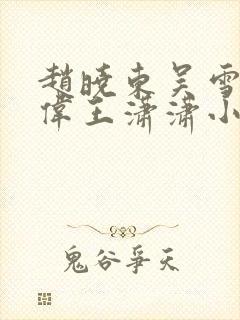 趙曉東吳雪
偉王瀟瀟小
鬼谷爭天